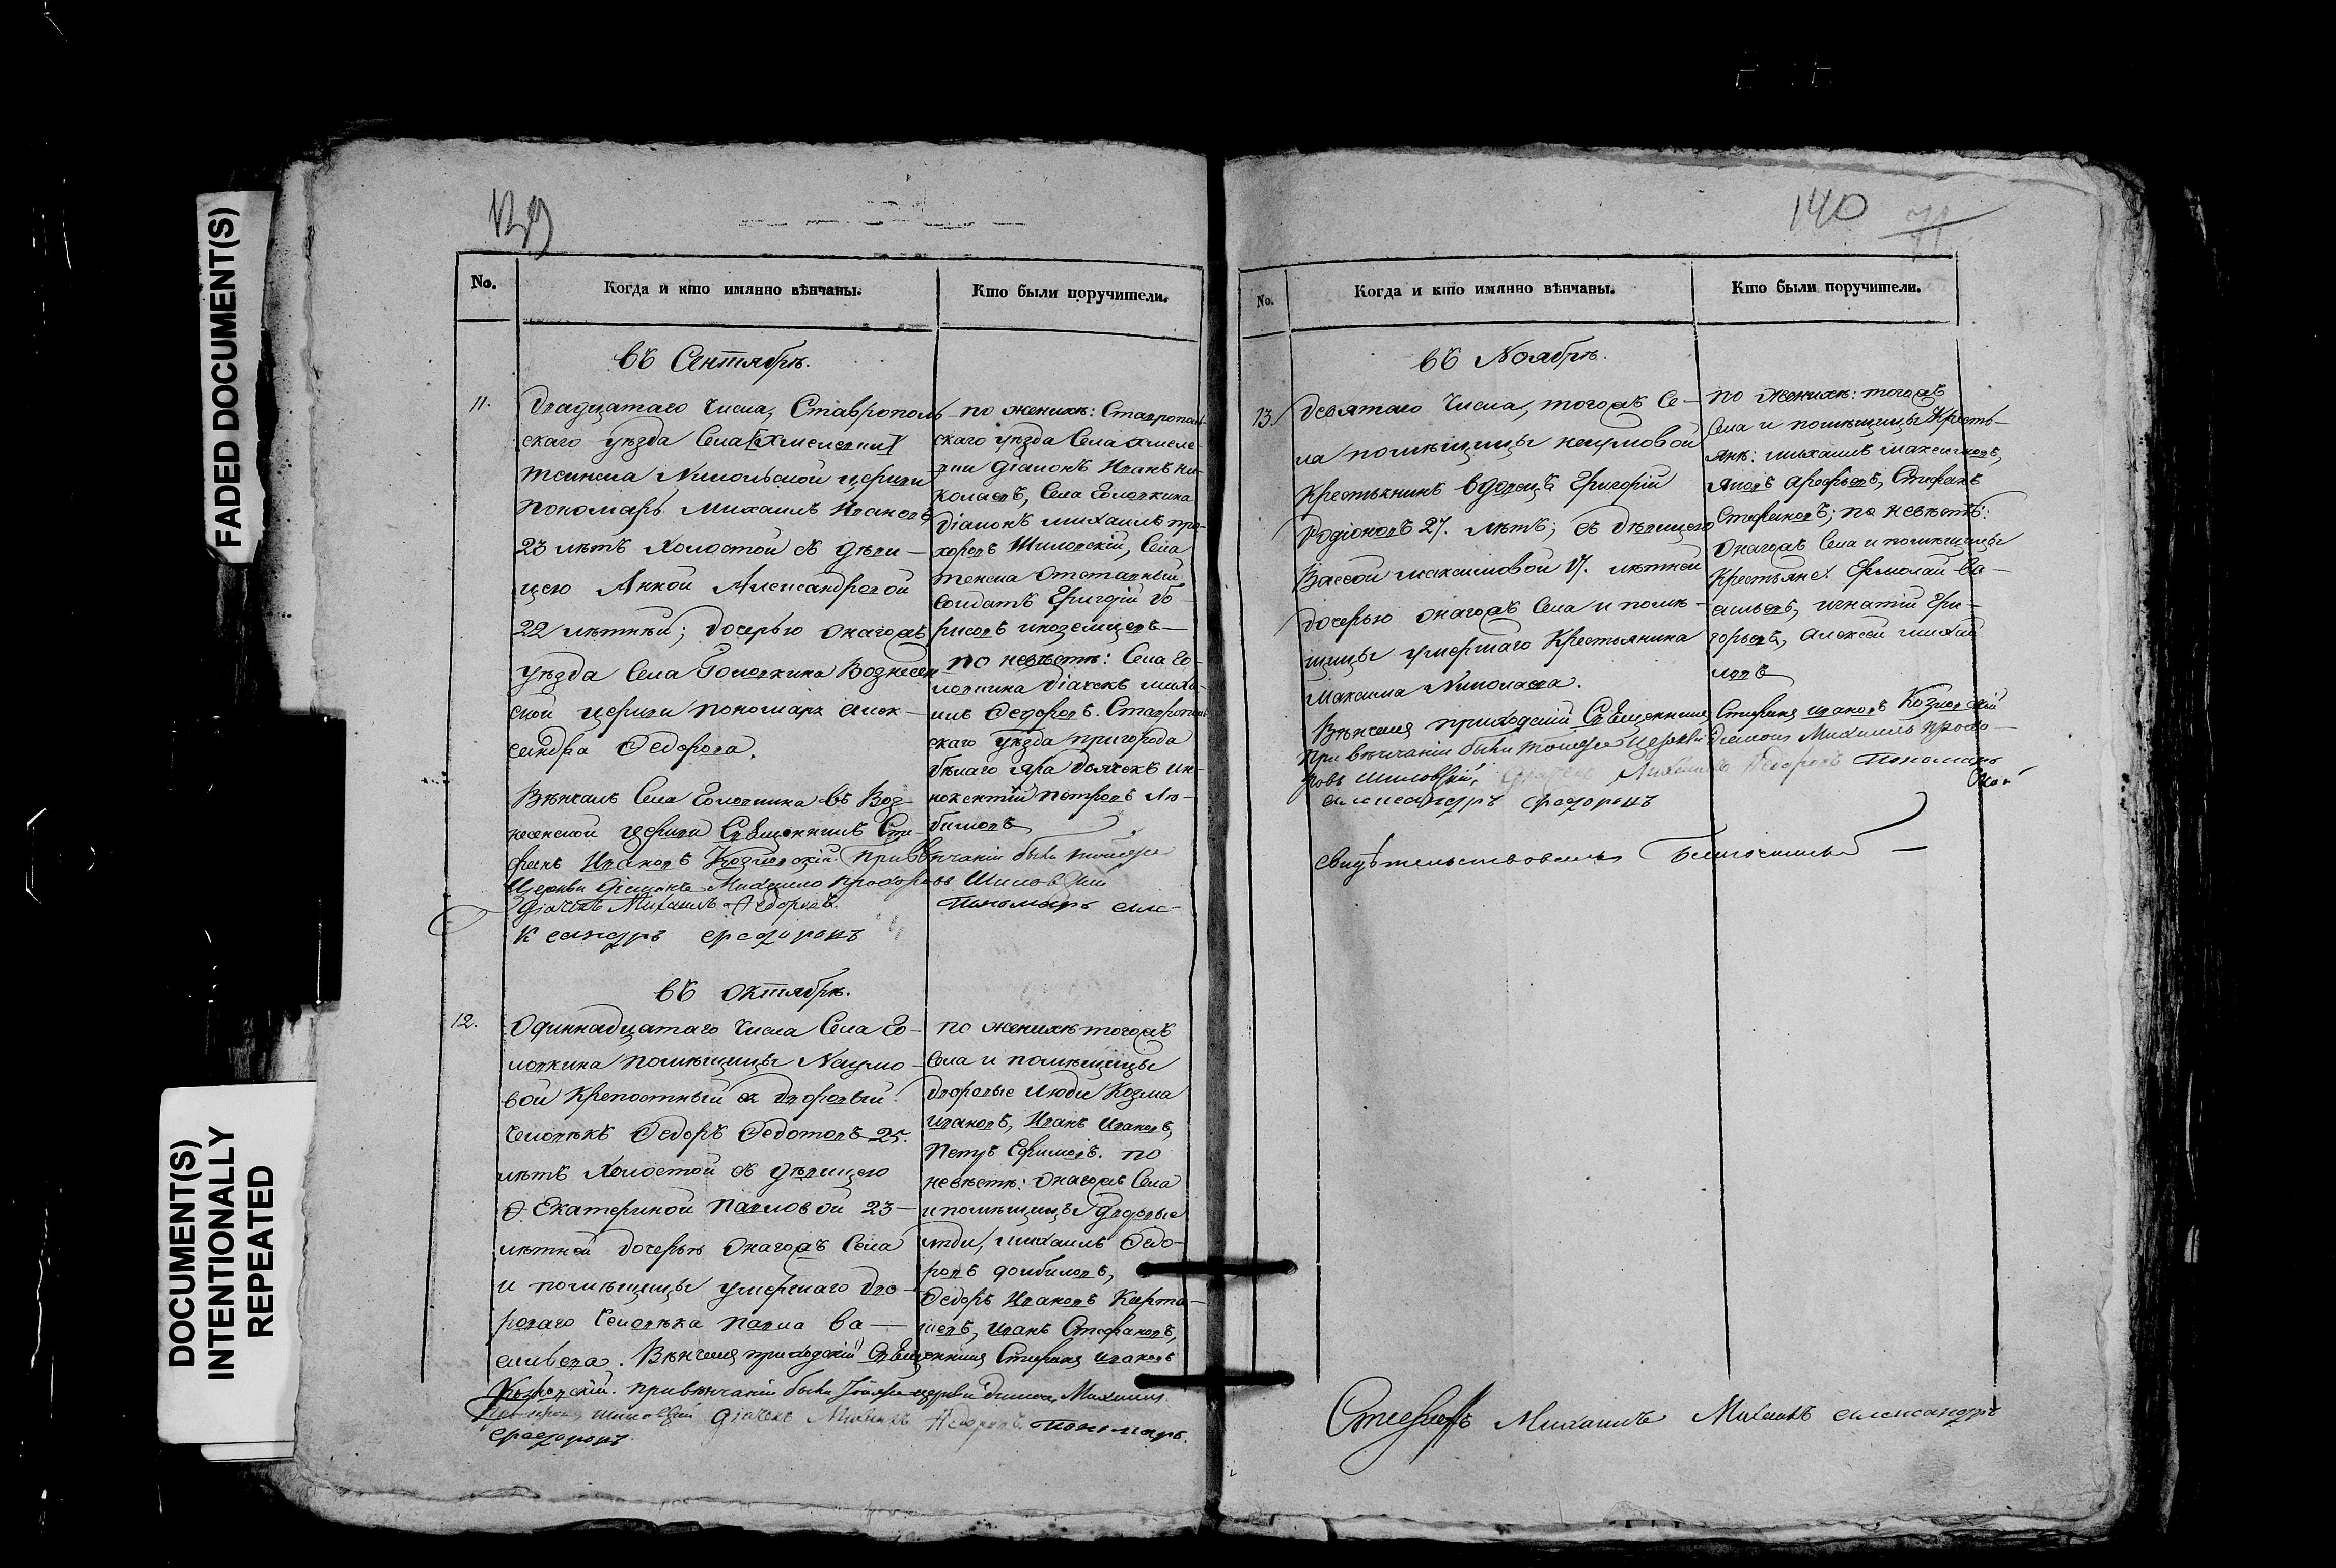 FADED DOCUMENT(S)
DOCUMENT(S)
INTENTIONALLY
REPEATED
139
No.
Когда и кто имянно вѣнчаны.
Кто были поручители.
въ Сентябрѣ.
11.
Двадцатаго Числа, Ставрополь-
скаго уѣзда Села
Тенеева Никольской церкви
Пономарь Михаилъ Ивановъ
23 лѣтъ холостой съ дѣви-
цею Анной Александровой
22 лѣтней; дочерью онагожъ
уѣзда Села Головкина Вознесен-
ской церкви пономаря Алек-
сандра Федорова.
Вѣнчалъ Села Головкина въ Воз-
несенской церкви Священникъ Сте-
фанъ Ивановъ Козловскій. При вѣнчаніи были тойже
Церкви Діаконъ Михаило Прохоровъ Шиловскій
Дiачекъ Михаилъ Федоровъ. Пономарь Але-
ксандръ Федоровъ
по женихѣ: Ставрополь-
скаго уѣзда Села
Діаконъ Иванъ Ни-
колаевъ, Села Головкина
Діаконъ Михаилъ Про-
хоровъ Шиловскій, Села
отставный
Солдатъ Григорій Бо-
рисовъ иноземцевъ
по невѣстѣ: Села Го-
ловкина Діачекъ Миха-
илъ Федоровъ. Ставрополь-
скаго уѣзда пригорода
Бѣлаго Яра Дьячекъ Ин-
нокентій Петровъ Лю-
бимовъ
въ Октябрѣ.
12.
Одиннадцатаго Числа Села Го-
ловкина помѣщицы Наумо-
вой Крепостный дворовый
Человѣкъ Федоръ Федотовъ 25.
лѣтъ холостой съ дѣвицею
Екатериной Павловой 23-
лѣтней дочерью онагожъ Села
и помѣщицы умершаго дво-
роваго Человѣка Павла Ва-
сильева. Вѣнчалъ приходскій Священникъ Стефанъ Ивановъ
Козловскій. при вѣнчаніи были тойже церкви Діаконъ Михаилъ
Прохоровъ Шиловскій Діачекъ Михаилъ Федоровъ. Пономарь
Федоровъ
по женихѣ тогожъ
Села и помѣщицы
дворовые люди Козма
Ивановъ, Иванъ Ивановъ,
Петръ Ефимовъ. по
невѣстѣ: онагожъ Села
и помѣщицы дворовые
люди, Михаилъ Федо-
ровъ
Федоръ Ивановъ
Иванъ Стефановъ,
140
71
No.
Когда и кто имянно вѣнчаны.
Кто были поручители.
въ Ноябрѣ.
13.
Девятаго Числа, тогожъ Се-
ла помѣщицы Наумовой
Крестьянинъ вдовецъ Григорій
Родіоновъ 27. лѣтъ; съ дѣвицею
Вассой Максимовой 17. лѣтней
дочерью онагожъ Села и помѣ-
щицы умершаго Крестьянина
Максима Николаева.
Вѣнчалъ приходскій Священникъ Стефанъ Ивановъ Козловскій
При вѣнчаніи были тойже Церкви Діаконъ Михаилъ Прохо-
ровъ Шиловскій, Діачекъ Михаилъ Федоровъ Пономарь
Александръ Федоровъ
по женихѣ: тогожъ
Села и помѣщицы Кресть-
яне: Михаилъ Максимовъ,
Яковъ Арефьевъ, Стефанъ
Стефановъ; по невѣстѣ:
Онагожъ Села и помѣщицы
Крестьяне: Ермолай Ва-
сильевъ, Игнатій Гри-
горьевъ, Алексей Михай
ловъ
свидѣтельствовалъ Благочинный
Стефанъ Михаилъ Михаилъ Александръ